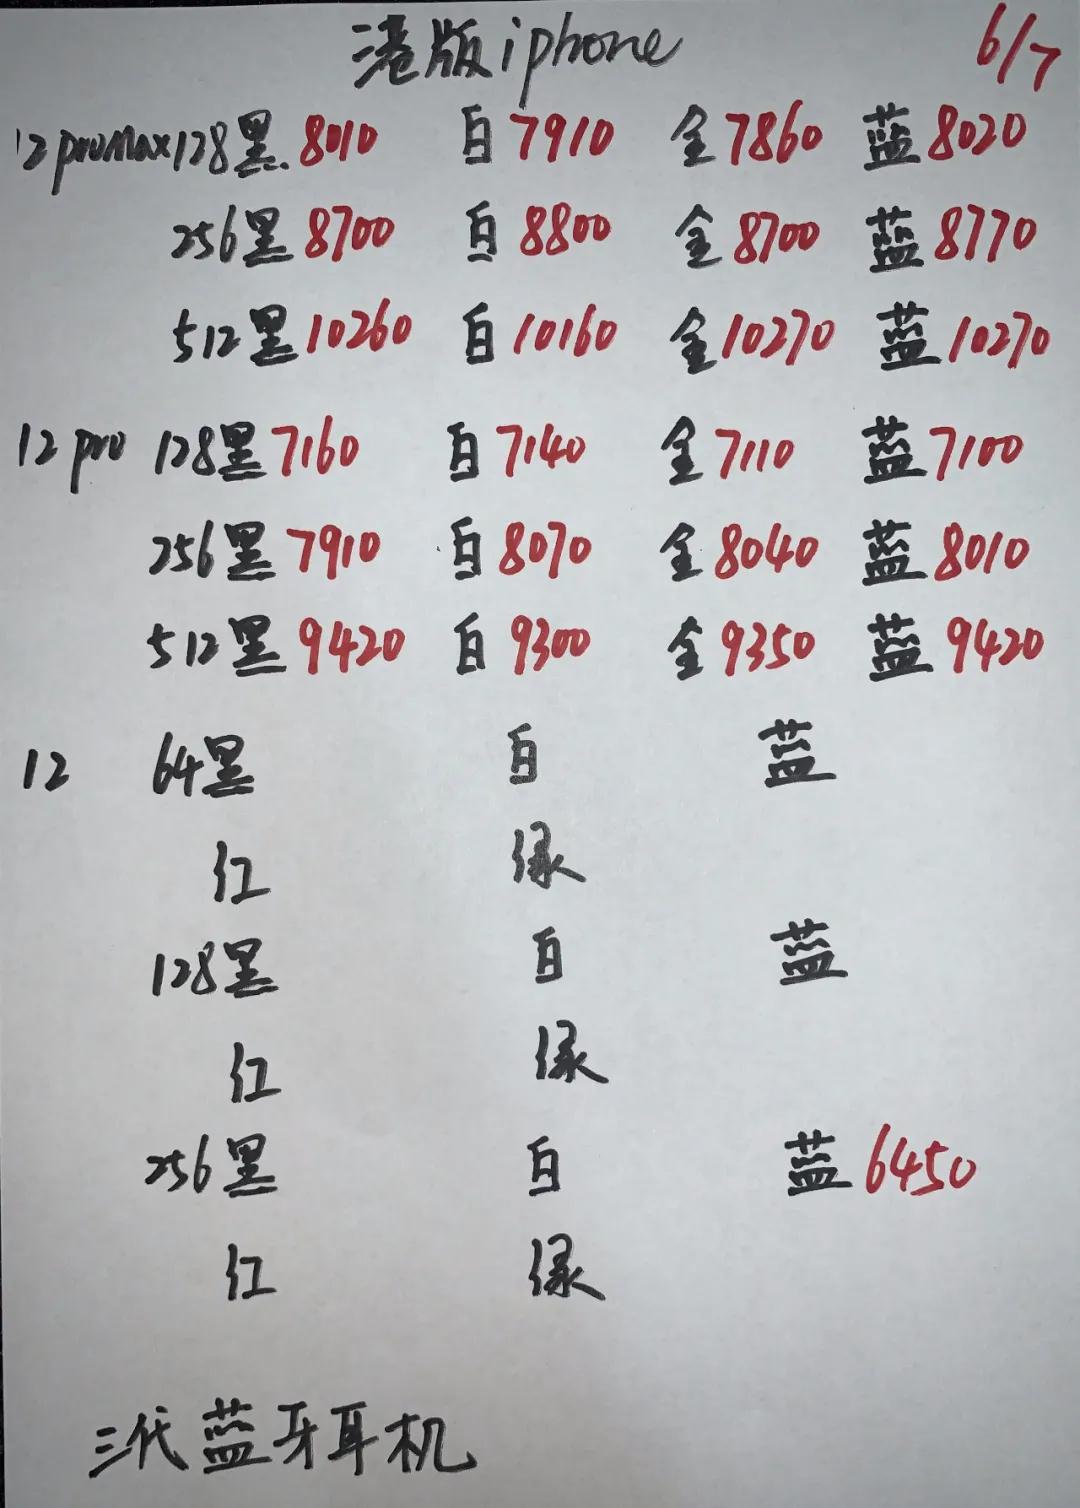 港版iphone 6/7
12promax128黑8010 白7910 金7860 蓝8020
256黑8700 白8800 金8700 蓝8770
512黑10260 白10160 金10270 蓝10270
12pro 128黑7160 白7140 金7110 蓝7100
256黑7910 白8070 金8040 蓝8010
512黑9420 白9300 金9350 蓝9420
12 64黑 白 蓝
红 绿
128黑 白 蓝
红 绿
256黑 白 蓝6450
红 绿
三代蓝牙耳机